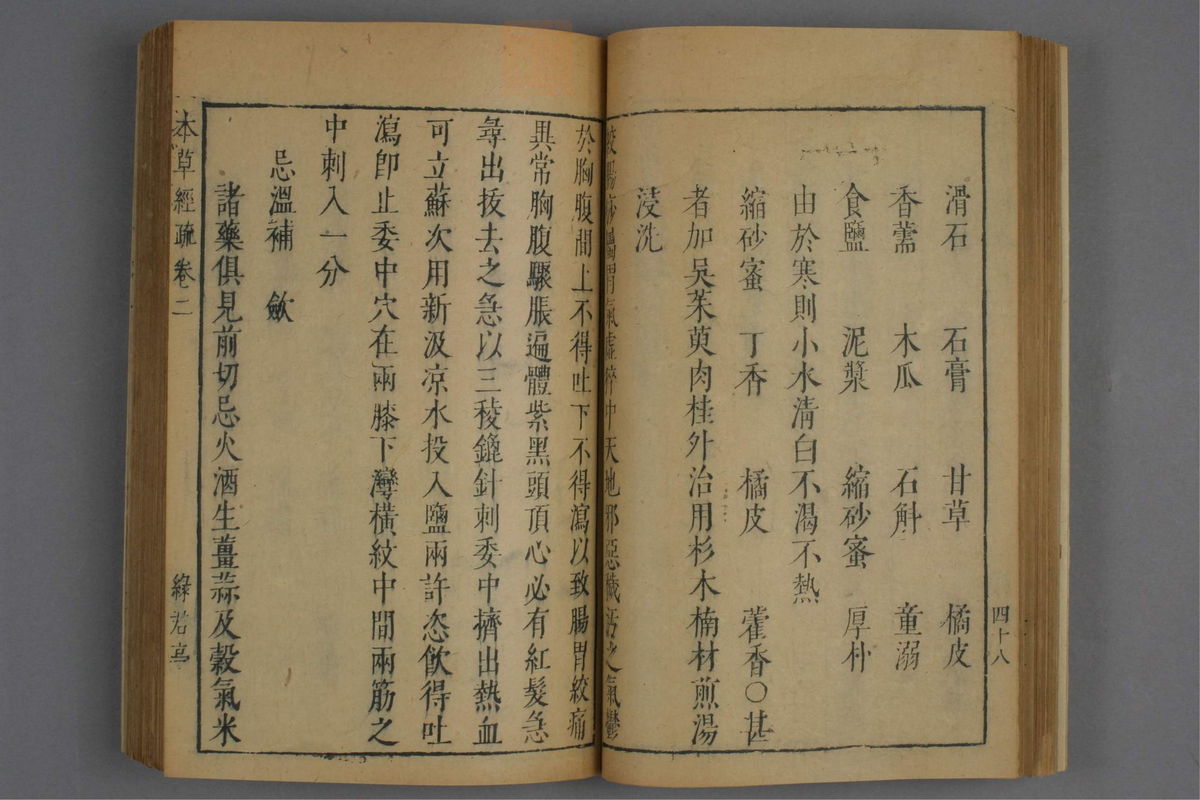 四十八
滑石　石膏　甘草　橘皮
香薷　木瓜　石斛　童溺
食鹽　泥漿　縮砂蜜　厚朴
由於寒則小水清白不渴不熱
縮砂蜜　丁香　橘皮　藿香○甚
者加吳茱萸肉桂外治用杉木楠材煎湯
浸洗
氣虛猝中天地邪惡穢污之氣鬱
於胸腹間上不得吐下不得瀉以致腸胃絞痛
異常胸腹驟脹遍體紫黑頭頂心必有紅髮急
尋出拔去之急以三稜鍼針刺委中擠出熱血
可立蘇次用新汲凉水投入鹽兩許恣飲得吐
瀉即止委中穴在兩膝下灣橫紋中間兩筋之
中刺入一分
忌溫補　斂
諸藥俱見前切忌火酒生薑蒜及穀氣米
本草經疏卷二
綠君亭